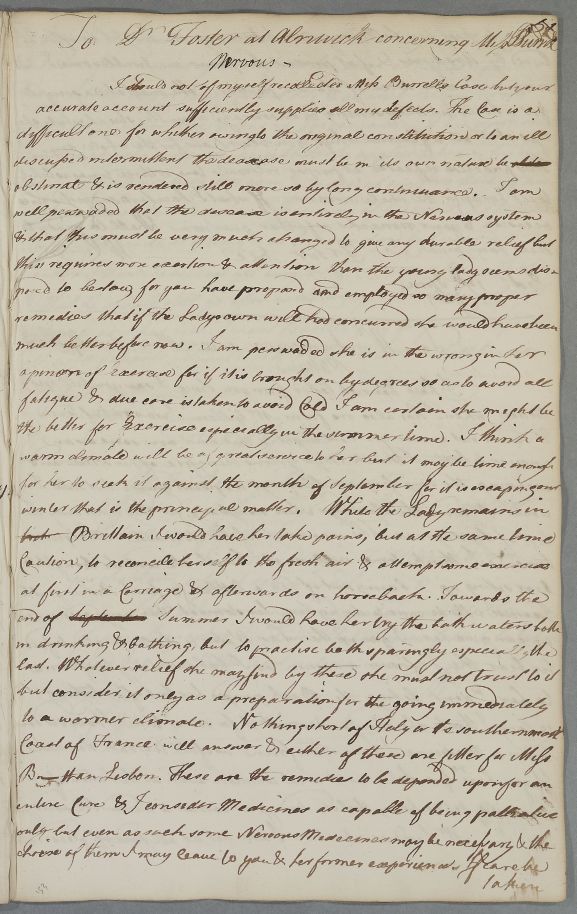 To Dr Foster at Alnwick concerning Miss
Nervous -
I should not of myself recollected Miss Burrells Case but your
accurate account sufficiently supplies all my defects. The Case is a
difficult one for whither owing to the original constitution or to an ill
descuiped intermittent the desease must be in its own nature be
obstinat & is rendered still more so by long continuance. I am
well perswaded that the desease is entirely in the Nervous system
& that this must be very much changed to give any durable relief but
this requires more exertion & attention than the young lady seems dis=
posed to bestow for you have proposed and employed so many proper
remedies that if the Ladys own will had concurred she would have been
much better before now. I am perswaded she is in the wrong in her
opinion of exercise for if it is brought on by degrees so as to avoid all
fatigue & due care is taken to avoid Cold I am certain she might be
the better for Exercise especially in the summer time. I think a
warm climate will be of great service to her but it may be time enough
for her to seek it against the month of September for it is escaping our
winter that is the principal matter. While the Lady remains in
Brittain I would have her take pains, but at the same time
Caution, to reconcile herself to the fresh air & attempt some exercise
at first in a Carriage & afterwards on horseback. Towards the
end of September Summer I would have her try the bath waters both
in drinking & bathing, but to practise both sparingly especially the
last. Whatever relief she may find by these she must not trust to it
but consider it only as a preparation for the going immediately
to a warmer climate. Nothing short of Italy or the southernmost
Coast of France will answer & either of these are fitter for Miss
B— than Lisbon. These are the remedies to be depended upon for an
entire Cure & I consider Medicines as capable of being palliative
only but even as such some Nervous Medicines may be necessary & the
choise of them I may leave to you & her former experience. If care be
taken